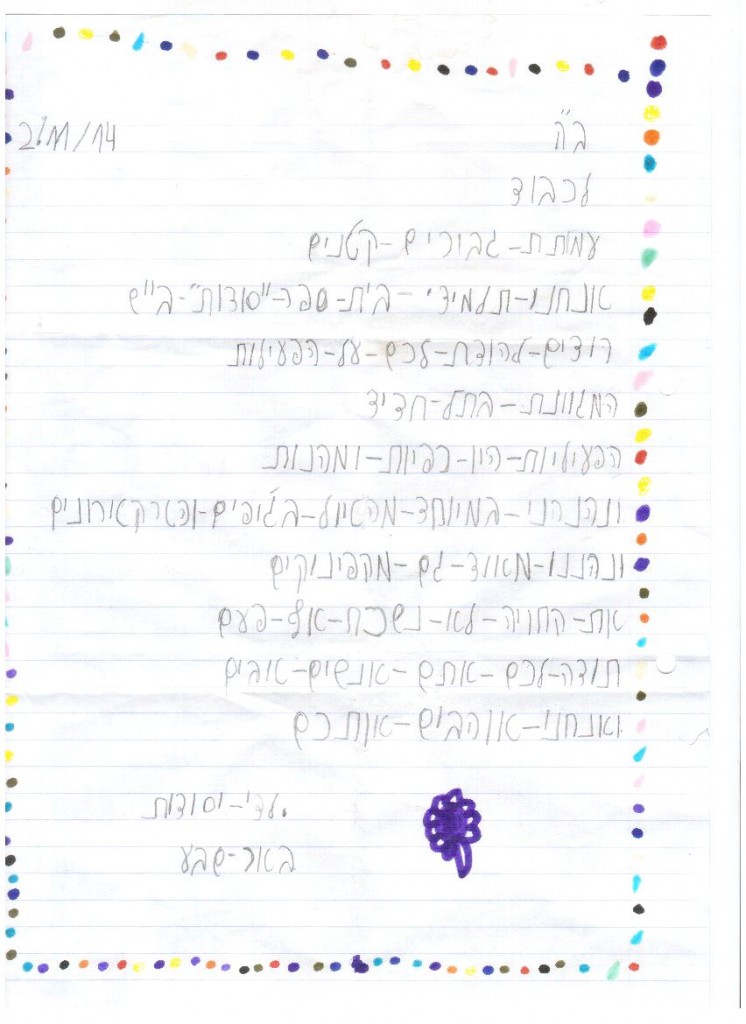 ב"ה 26/11/14
לכבוד
עמותת-גבורים-קטנים
אנחנו-תלמידי-בית-ספר-"יסודות"-ב"ש
רוצים-להודת-לכם-על-הפעילות
המגוונת-בתל-חדיד
הפעיליות-היו-כפיות-ומהנות
ונהנהני-במיוחד-מהטיול-בג'יפים-והטרקטירונים
ונהננו-מאוד-גם-מקפינוקים
את-החויה-לא-נשכח-אף-פעם
תודה-לכם-אתם-אנשים-טובים
ואנחנו-אוהבים-אותכם
ילדי-יסודות
באר-שבע